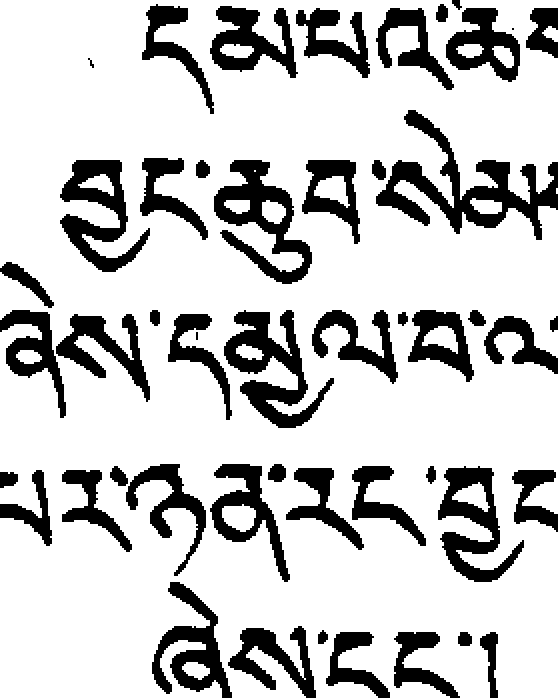 དམ་པའི་ཆ
བྱང་ཆུབ་སེམ
ཞེས་དམྱལ་བ་ལ
པར་ཉན་རང་བྱང
ཞེས་དང་།